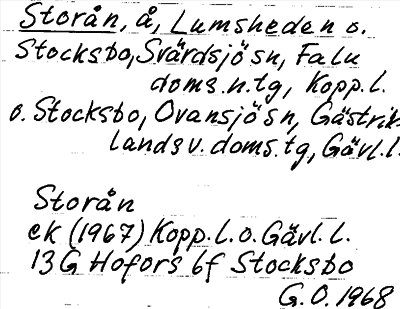 Storån, å, Lumsheden o.
Stocksbo, Svärdsjö sn, Falu
doms.n.tg, Kopp.l.
o. Stocksbo, Ovansjö sn, Gästrik-
lands v. doms.tg, Gävl.l.
Storån
ek (1967) Kopp.l.o.Gävl.l.
13G Hofors bf Stocksbo
G.O.1968